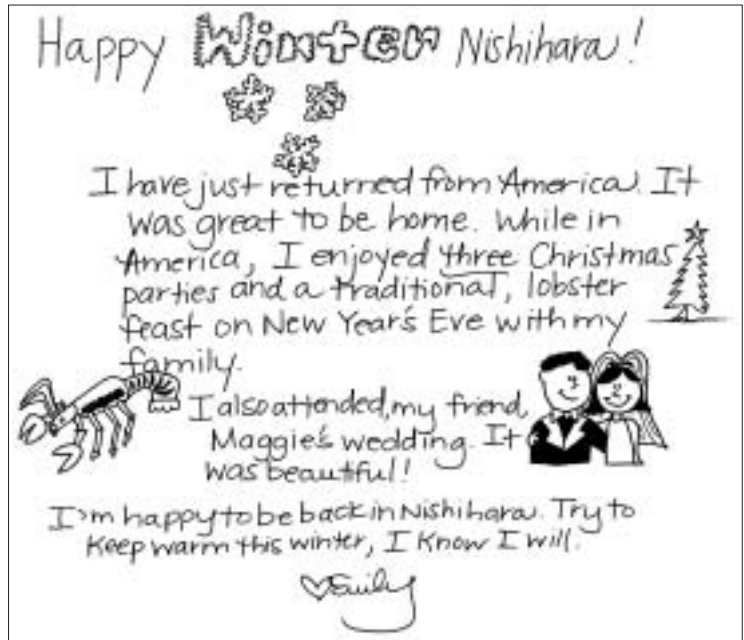 Happy Winter Nishihara!
I have just returned from America. It
was great to be home. While in
America, I enjoyed three Christmas
parties and a traditional, lobster
feast on New Year's Eve with my
family.
I also attended, my friend,
Maggie's wedding. It
was beautiful!
I'm happy to be back in Nishihara. Try to
keep warm this winter, I know I will.
♡Emily